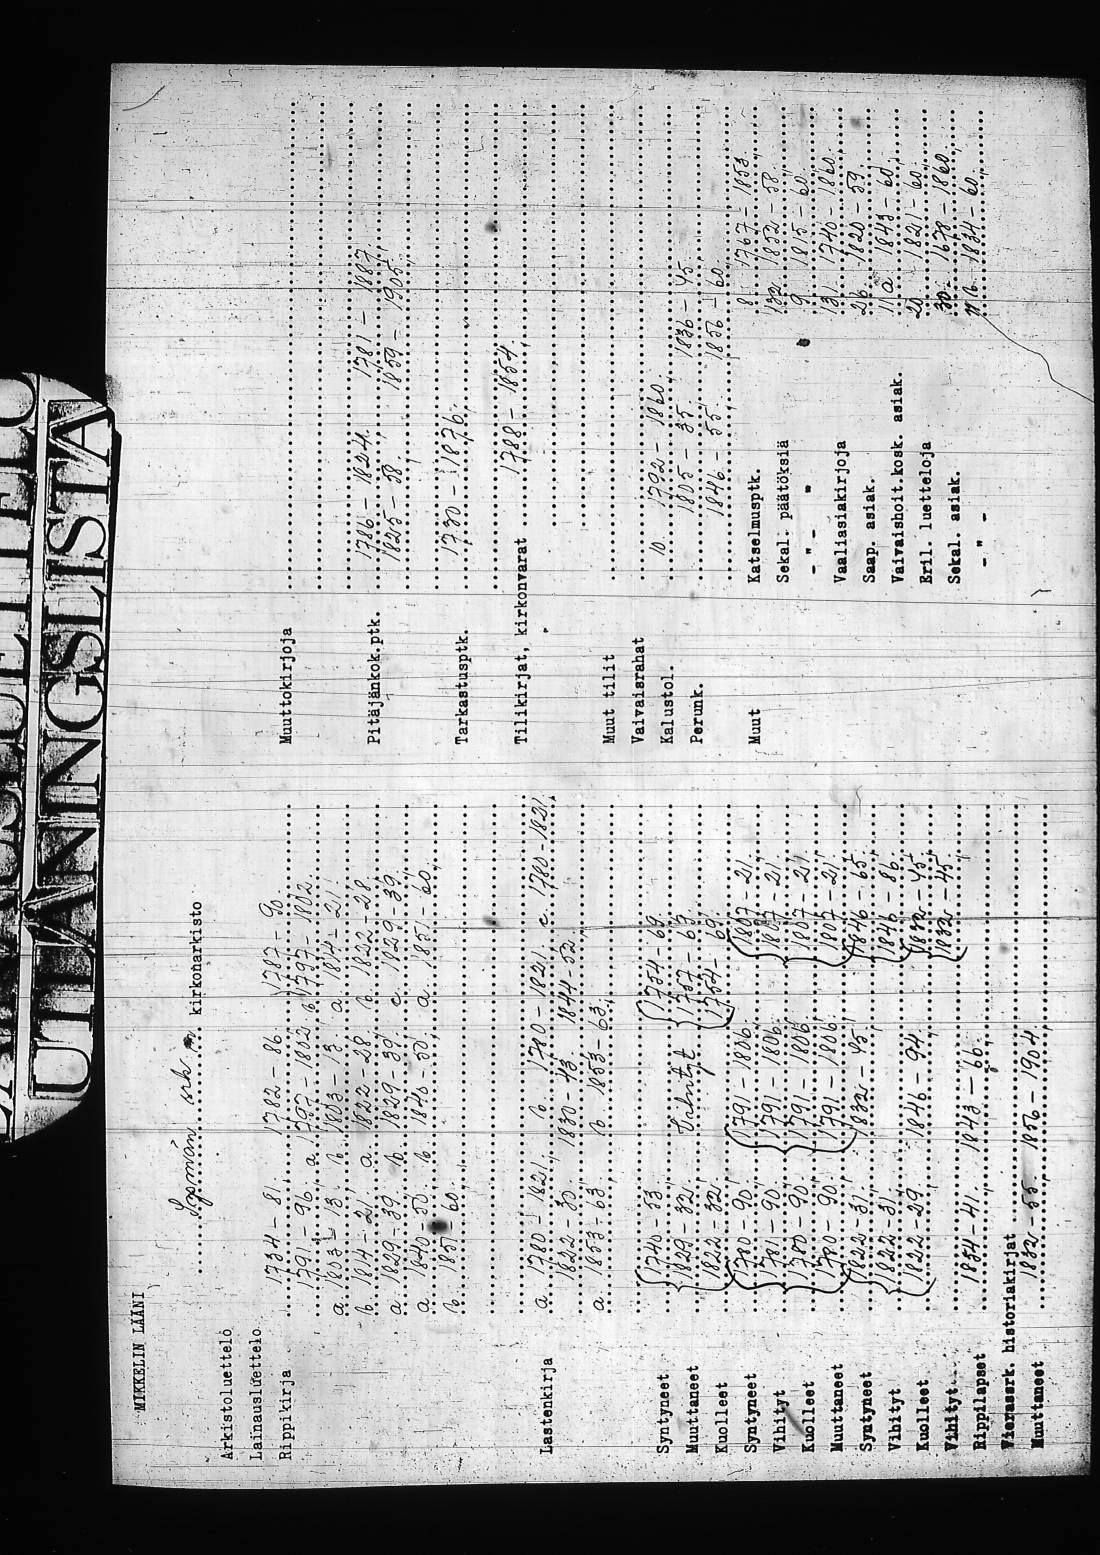 UTLÅNINGSLISTA
MIKKELIN LÄÄNI
Sysmän srk:n kirkonarkisto
Arkistoluettelo
Lainausluettelo
Rippikirja 1734 - 81, 1782 - 86, 1787 - 90,
1791 - 96, a 1797 - 1802 b 1797 - 1802,
a 1803 - 13, b 1803 - 13, a 1814 - 21,
b 1814 - 21, a 1822 - 28, b 1822 - 28,
a 1829 - 39, b 1829 - 39, c 1829 - 39,
a 1840 - 50, b 1840 - 50, a 1851 - 60,
b 1851 - 60,
Lastenkirja a 1780 - 1821, b 1780 - 1821, c 1780 - 1821,
1822 - 30, 1830 - 43, 1844 - 52,
a 1853 - 63, b 1853 - 63,
Syntyneet 1740 - 53 1754 - 69
Muuttaneet 1829 - 32, Vihityt 1757 - 63
Kuolleet 1822 - 32, 1754 - 69
Syntyneet 1780 - 90, 1791 - 1806, 1807 - 21,
Vihityt 1781 - 90, 1791 - 1806, 1807 - 21,
Kuolleet 1780 - 90, 1791 - 1806, 1807 - 21,
Muuttaneet 1780 - 90, 1791 - 1806, 1805 - 21,
Syntyneet 1822 - 31, 1832 - 45, 1846 - 65,
Vihityt 1822 - 31, 1846 - 86,
Kuolleet 1822 - 29, 1846 - 94, 1832 - 45,
Vihityt 1832 - 45,
Rippilapset 1834 - 41, 1843 - 66,
Vierassrk. historiakirjat
Muuttaneet 1832 - 55, 1856 - 1904,
Muuttokirjoja
Pitäjänkok.ptk. 1786 - 1824, 1781 - 1887,
1825 - 58, 1859 - 1905,
Tarkastusptk. 1730 - 1876,
Tilikirjat, kirkonvarat 1788 - 1854,
Muut tilit
Vaivaisrahat
Kalustol. 10 1792 - 1860,
Perunk. 1805 - 35, 1836 - 45,
1846 - 55, 1856 - 60,
Muut Katselmusptk. 8 1767 - 1853,
Sekal. päätöksiä 132 1852 - 58,
- " - " 9 1815 - 60,
Vaaliasiakirjoja 131 1740 - 1860,
Saap. asiak. 26 1820 - 59,
Vaivaishoit.kosk. asiak. 11 a 1843 - 60,
Eril. luetteloja 20 1821 - 60,
Sekal. asiak. 30 1678 - 1860,
- " - 11 b 1834 - 60,